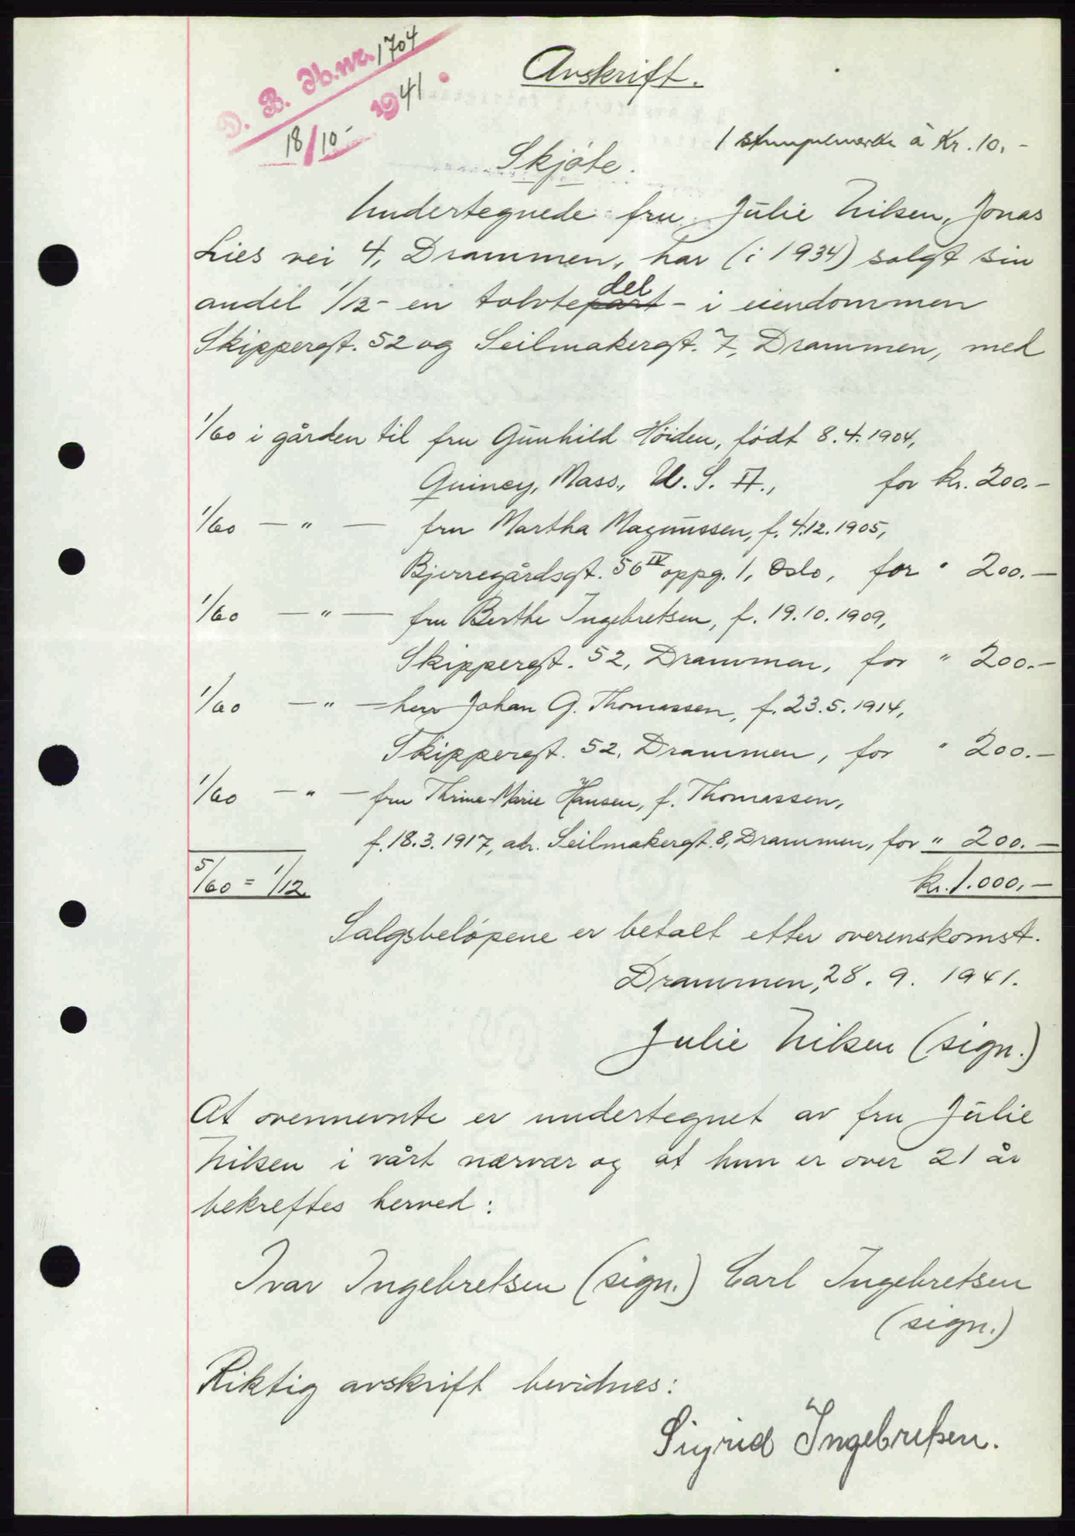 D. B. Jb.nr. 1704
18/10- 1941
Avskrift.
1 stempelmerke à Kr. 10.-
Skjøte.
Undertegnede fru Julie Nilsen, Jonas
Lies vei 4, Drammen, har (i 1934) solgt sin
andel 1/12 - en tolvtepart del - i eiendommen
Skippergt. 52 og Seilmakergt. 7, Drammen, med
1/60 i gården til fru Gunhild Höiden, født 8.4.1904,
Quincy, Mass., U. S. A., for kr. 200.-
1/60 — " — fru Martha Magnussen, f. 4.12.1905,
Bjerregårdsgt. 56 IV oppg. 1, Oslo, for " 200.-
1/60 — " — fru Berthe Ingebretsen, f. 19.10.1909,
Skippergt. 52, Drammen, for " 200.-
1/60 — " — herr Johan G. Thomassen, f. 23.5.1914,
Skippergt. 52, Drammen, for " 200.-
1/60 — " — fru Thrine-Marie Hansen, f. Thomassen,
f. 18.3.1917, adr. Seilmakergt. 8, Drammen, for " 200.-
5/60 = 1/12 kr. 1.000.-
Salgsbeløpene er betalt etter overenskomst.
Drammen, 28. 9. 1941.
Julie Nilsen (sign.)
At ovennevnte er undertegnet av fru Julie
Nilsen i vårt nærvær og at hun er over 21 år
bekreftes herved:
Ivar Ingebretsen (sign.) Carl Ingebretsen
(sign.)
Riktig avskrift bevidnes:
Sigrid Ingebretsen.